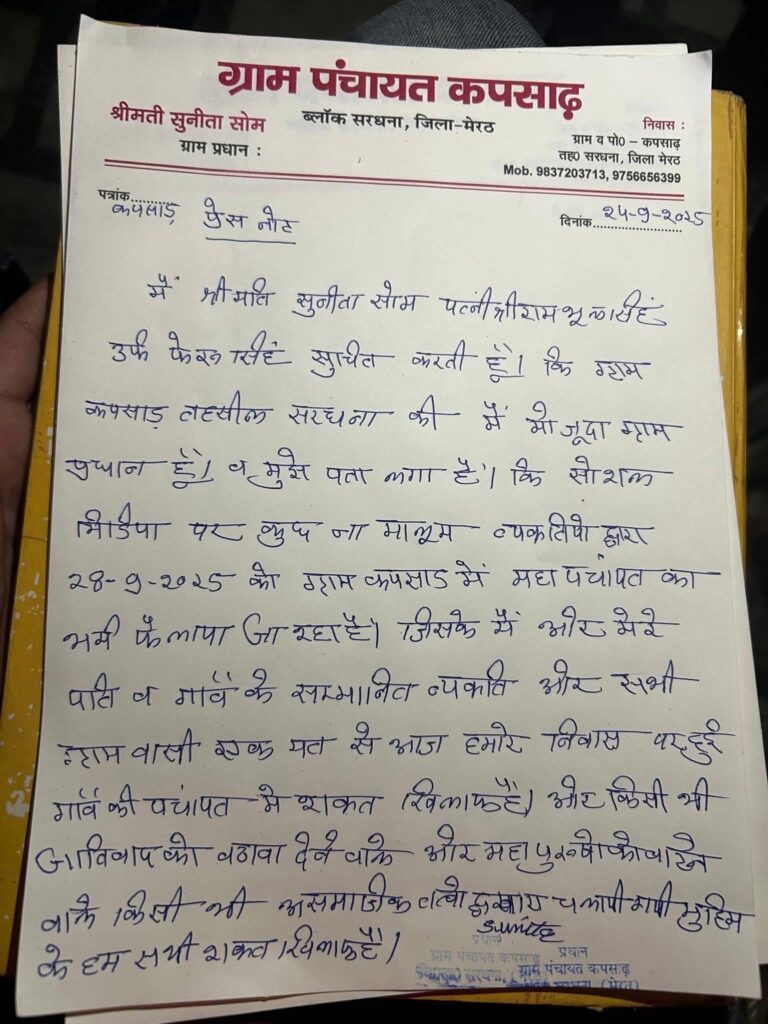 ग्राम पंचायत कपसाढ़
श्रीमती सुनीता सोम
ग्राम प्रधान :
ब्लॉक सरधना, जिला-मेरठ
निवास :
ग्राम व पो0 – कपसाढ़
तह0 सरधना, जिला मेरठ
Mob. 9837203713, 9756656399
पत्रांक.........
कपसाड़ प्रेस नोट
दिनांक २५-9-२०२५
मैं श्रीमति सुनीता सोम पत्नी श्री राम भूल सिंह
उर्फ फेरू सिंह सुचित करती हूँ। कि ग्राम
कपसाड़ तहसील सरधना की मैं मोजूदा ग्राम
प्रधान हूँ। व मुझे पता लगा है। कि सोशल
मिडिया पर कुछ ना मालूम व्यकतियो द्वारा
२8-9-२०२५ को ग्राम कपसाड में महा पचांयत का
भर्म फैलाया जा रहा है। जिसके मैं ओर मेरे
पति व गावँ के सम्मानित व्यकति ओर सभी
ग्राम वासी एक मत से आज हमारे निवास पर हुई
गावँ की पचांयत मे शकत खिलाफ है। ओर किसी भी
जातिवाद को बढावा देने वाले ओर महापुरुषो को बाटने
वाले किसी भी असमाजिक तत्वो द्वारा चलायी गयी मुहिम
के हम सभी शकत खिलाफ है।
sunita
प्रधान
ग्राम पंचायत कपसाढ़
प्रधान
ग्राम पंचायत कपसाढ़
सरधना, (मेरठ)